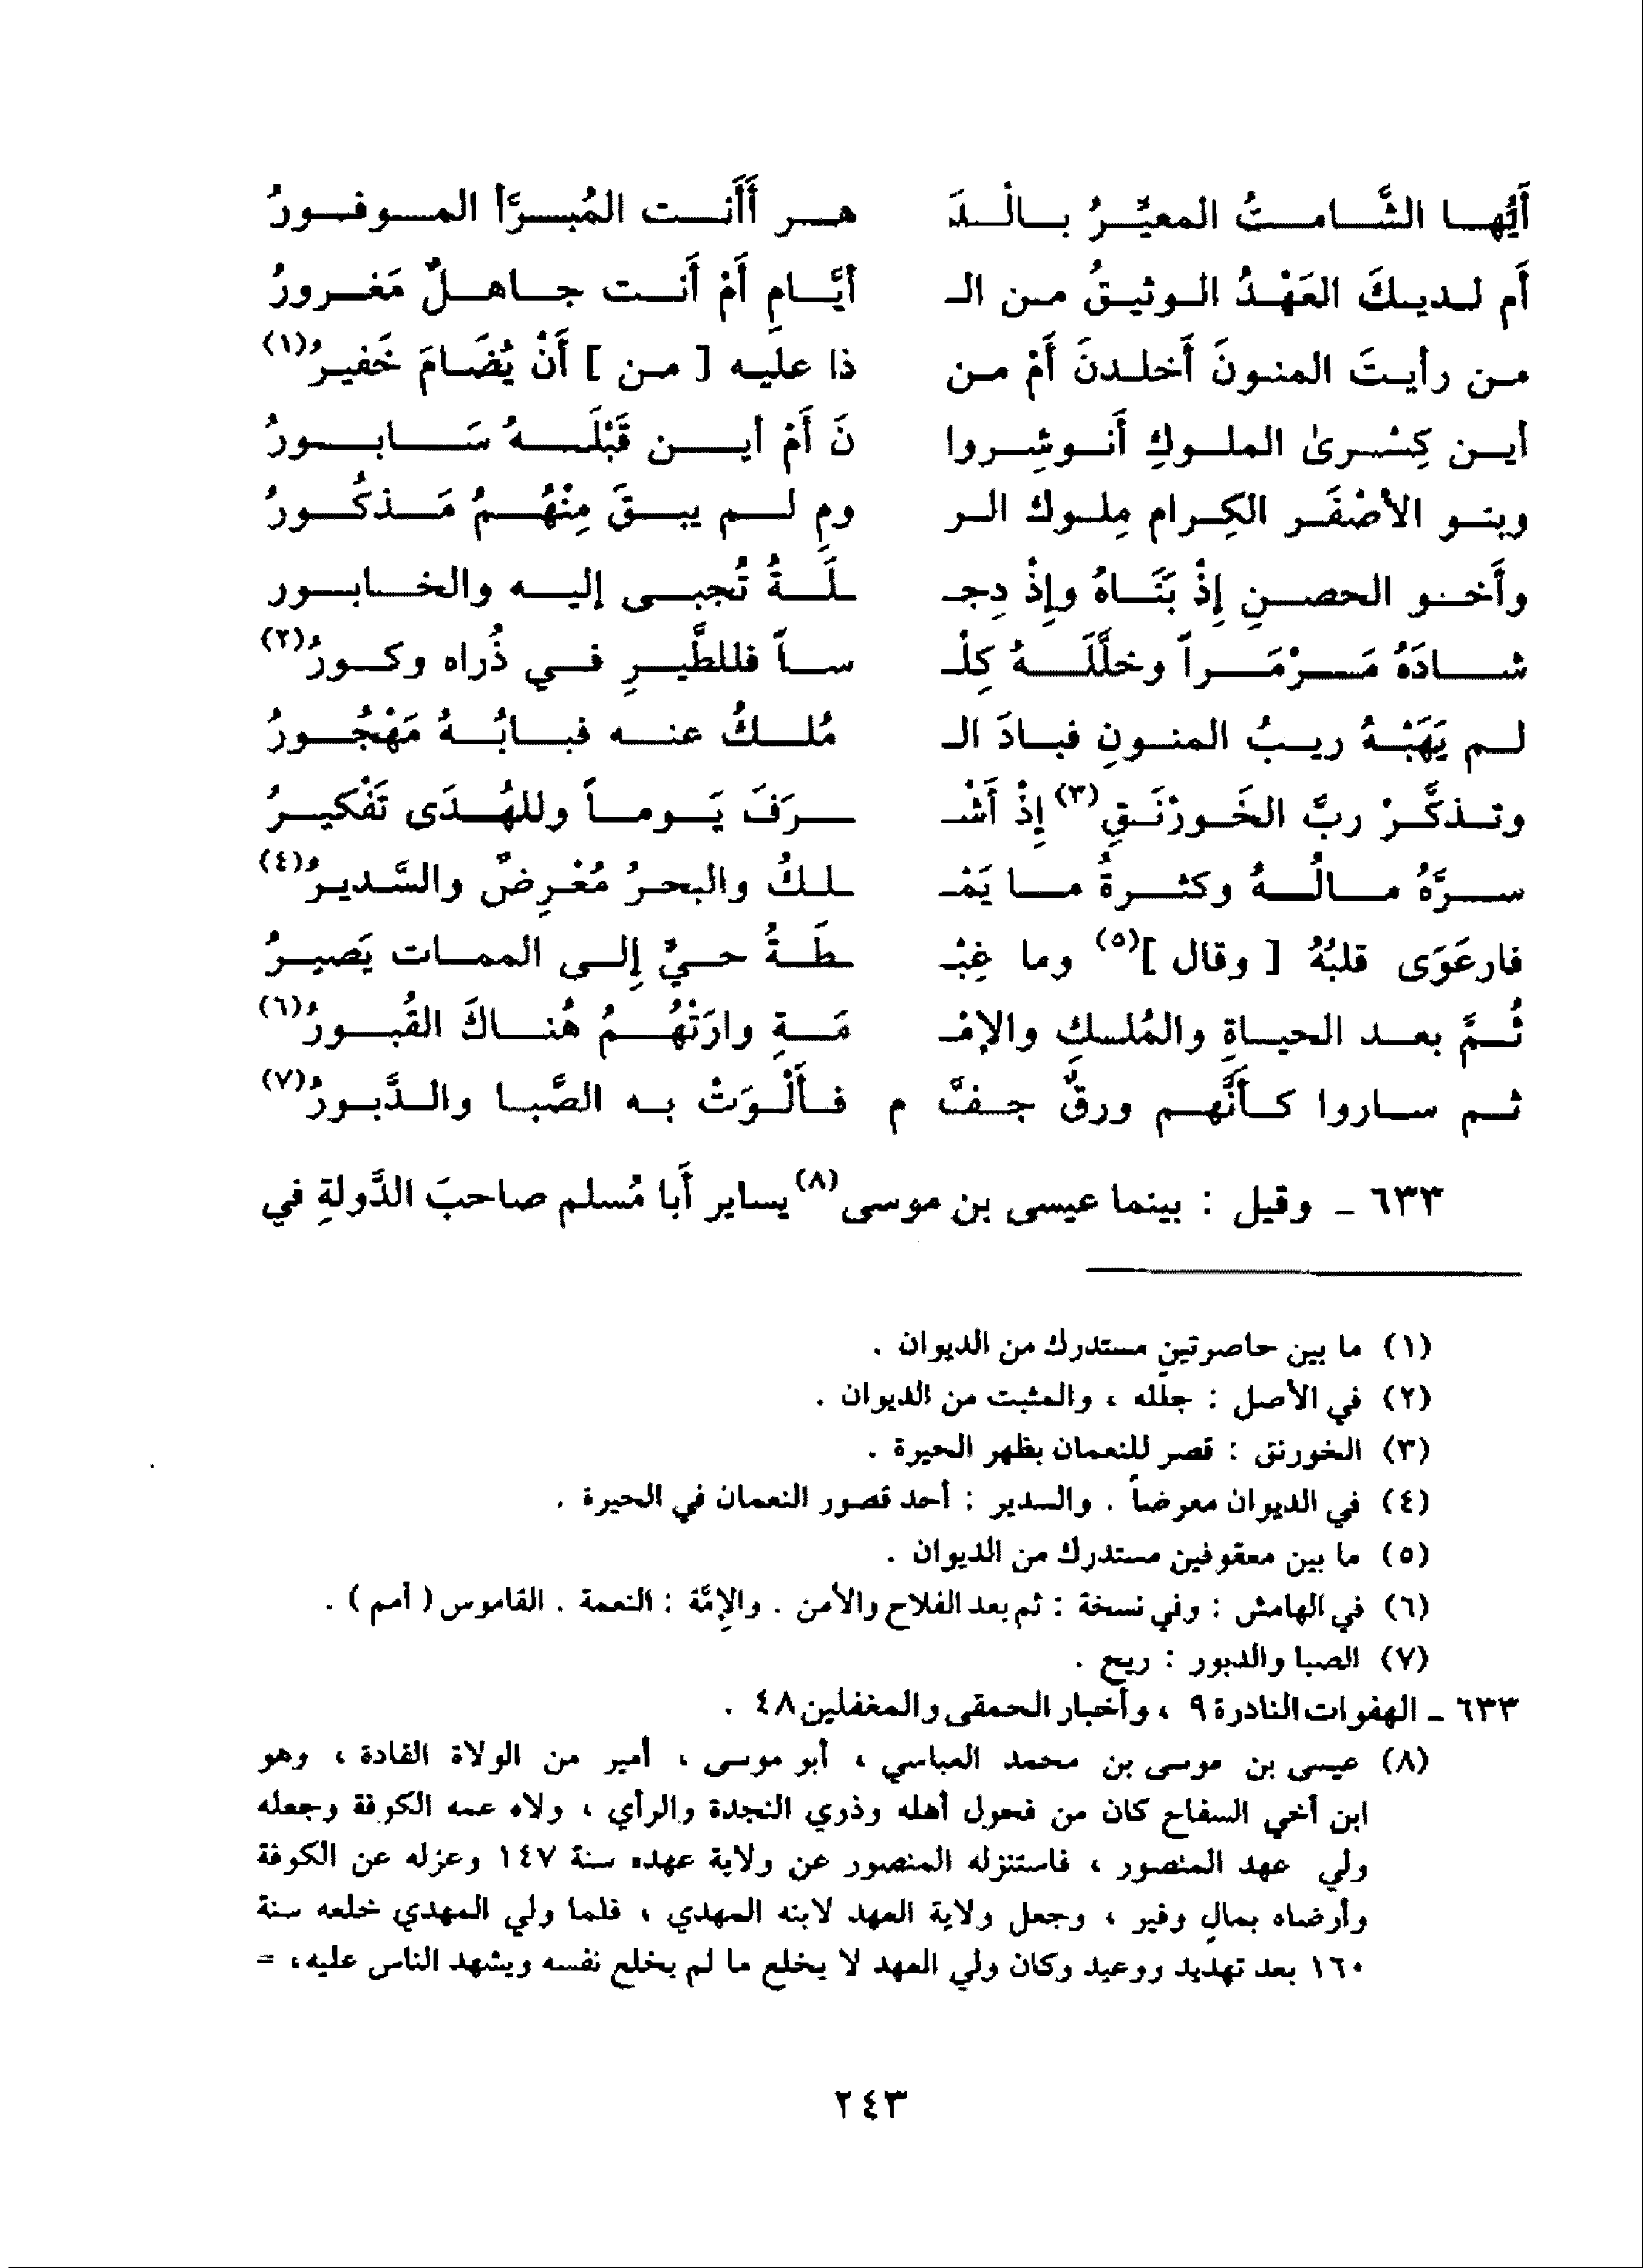 أَيُّها الشَّامتُ المعيِّرُ بالْدَّ هر أَأَنت المُبرَّأ الموفورُ
أَم لديكَ العَهْدُ الوثيقُ من الـ أيَّامِ أَمْ أَنت جاهلٌ مَغرورُ
من رأيتَ المنونَ أَخلدنَ أَمْ من ذا عليه [ من ] أَنْ يُضَامَ خَفيرُ(١)
أين كِسْرىٰ الملوكِ أَنوشِروا نَ أَمْ أين قَبْلَهُ سَابورُ
وبنو الأَصْفَر الكِرام مِلوك الر ومِ لم يبقَ مِنْهُمُ مَذكُورُ
وأَخو الحصنِ إِذْ بَنَاهُ وإِذْ دِجـ ـلَةُ تُجبى إليه والخابور
شادَهُ مَرْمَراً وخلَّلَهُ كِلْـ ساً فللطَّيرِ في ذُراه وكورُ(٢)
لم يَهَبْهُ ريبُ المنونِ فبادَ الـ مُلكُ عنه فبابُهُ مَهْجُورُ
وتذكَّرْ ربَّ الخَورْنَقِ(٣) إِذْ أَشْـ ـرَفَ يَوماً وللهُدَى تَفْكيرُ
سرَّهُ مالُهُ وكثرةُ ما يَمْـ ـلكُ والبحرُ مُعْرِضٌ والسَّديرُ(٤)
فارعَوَى قلبُهُ [ وقال ](٥) وما غِبْـ ـطَةُ حيٍّ إِلى الممات يَصيرُ
ثُمَّ بعد الحياةِ والمُلكِ والإمْـ مَةِ وارَتْهُمُ هُناكَ القُبورُ(٦)
ثم ساروا كأَنَّهم ورقٌ جفَّ م فأَلْوَتْ به الصَّبا والدَّبورُ(٧)
٦٣٣ ـ وقيل : بينما عيسى بن موسى(٨) يساير أَبا مُسلم صاحبَ الدَّولةِ في
(١) ما بين حاصرتين مستدرك من الديوان .
(٢) في الأصل : جلله ، والمثبت من الديوان .
(٣) الخورنق : قصر للنعمان بظهر الحيرة .
(٤) في الديوان معرضاً . والسدير : أحد قصور النعمان في الحيرة .
(٥) ما بين معقوفين مستدرك من الديوان .
(٦) في الهامش : وفي نسخة : ثم بعد الفلاح والأمن . والإِمَّة : النعمة . القاموس ( أمم ) .
(٧) الصبا والدبور : ريح .
٦٣٣ ـ الهفوات النادرة ٩ ، وأخبار الحمقى والمغفلين ٤٨ .
(٨) عيسى بن موسى بن محمد العباسي ، أبو موسى ، أمير من الولاة القادة ، وهو
ابن أخي السفاح كان من فحول أهله وذري النجدة والرأي ، ولاه عمه الكوفة وجعله
ولي عهد المنصور ، فاستنزله المنصور عن ولاية عهده سنة ١٤٧ وعزله عن الكوفة
وأرضاه بمال وفير ، وجعل ولاية العهد لابنه المهدي ، فلما ولي المهدي خلعه سنة
١٦٠ بعد تهديد ووعيد وكان ولي العهد لا يخلع ما لم يخلع نفسه ويشهد الناس عليه، =
٢٤٣